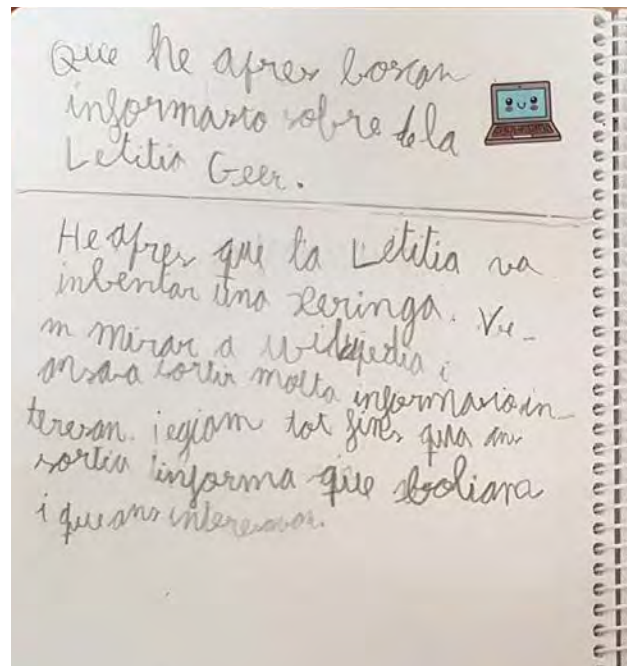 Que he apres boscan
informasio sobre de la
Letitia Geer.
He apres que la Letitia va
inbentar una xeringa. Ve-
m mirar a wikipedia i
ansava sortir molta informasio in-
teresan. i egiam tot fins qua ans
sortia informa que boliam
i que ans interesavan.